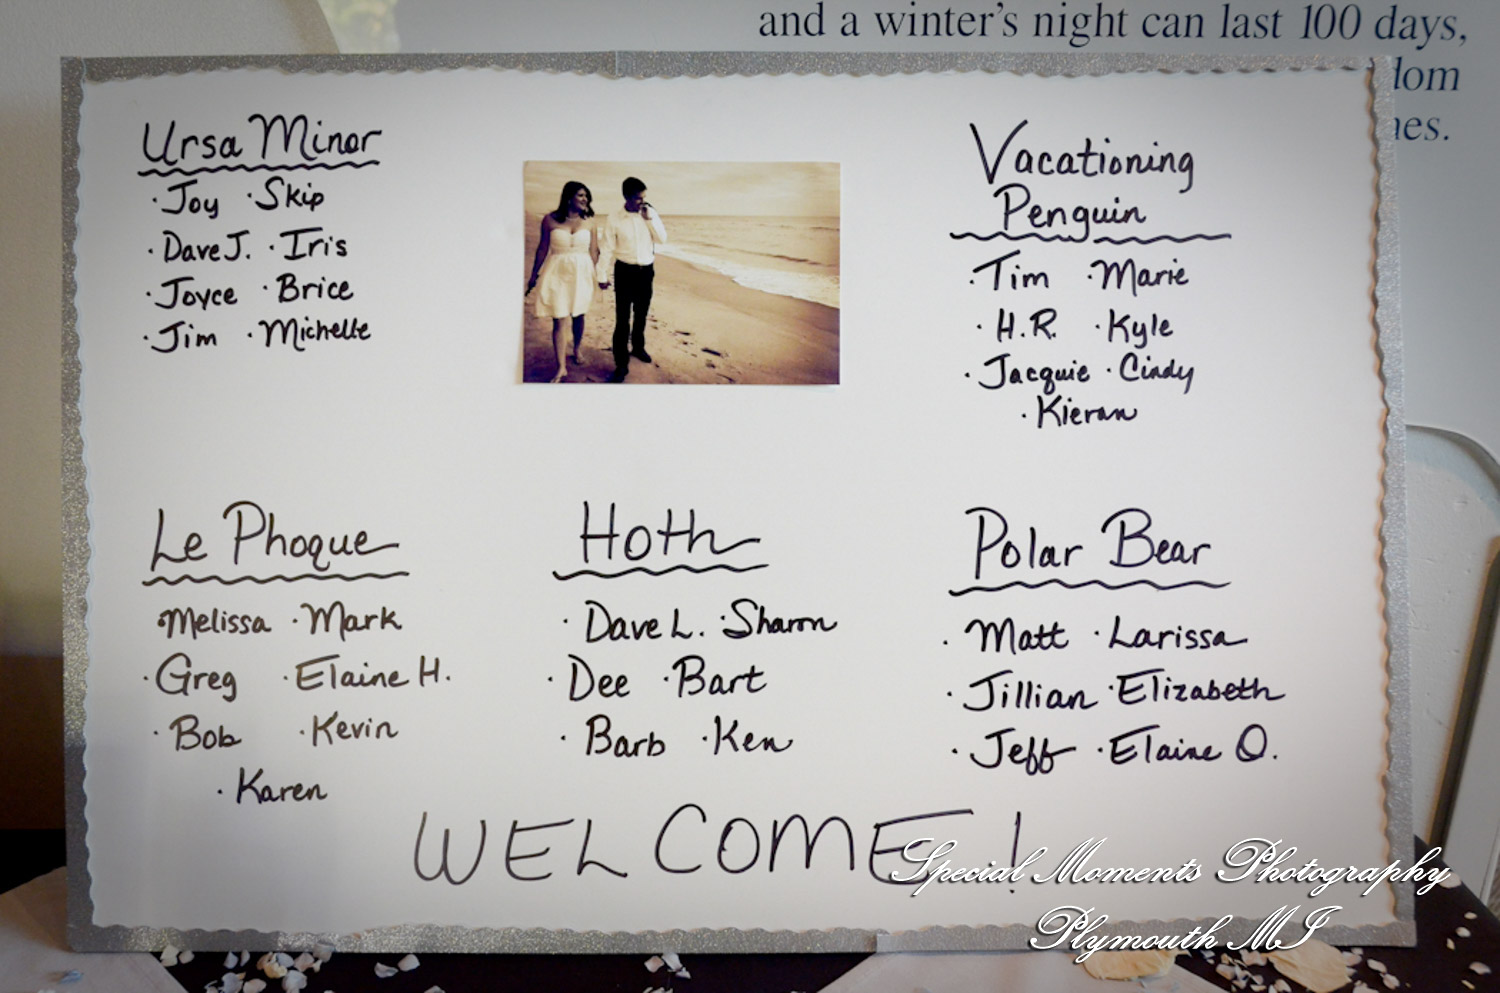 and a winter's night can last 100 days,
dom
nes.
Ursa Minor
· Joy · Skip
· Dave J. · Iris
· Joyce · Brice
· Jim · Michelle
Vacationing
Penguin
· Tim · Marie
· H.R. · Kyle
· Jacquie · Cindy
· Kieran
Le Phoque
· Melissa · Mark
· Greg · Elaine H.
· Bob · Kevin
· Karen
Hoth
· Dave L. · Sharon
· Dee · Bart
· Barb · Ken
Polar Bear
· Matt · Larissa
· Jillian · Elizabeth
· Jeff · Elaine O.
WELCOME!
Special Moments Photography
Plymouth MI